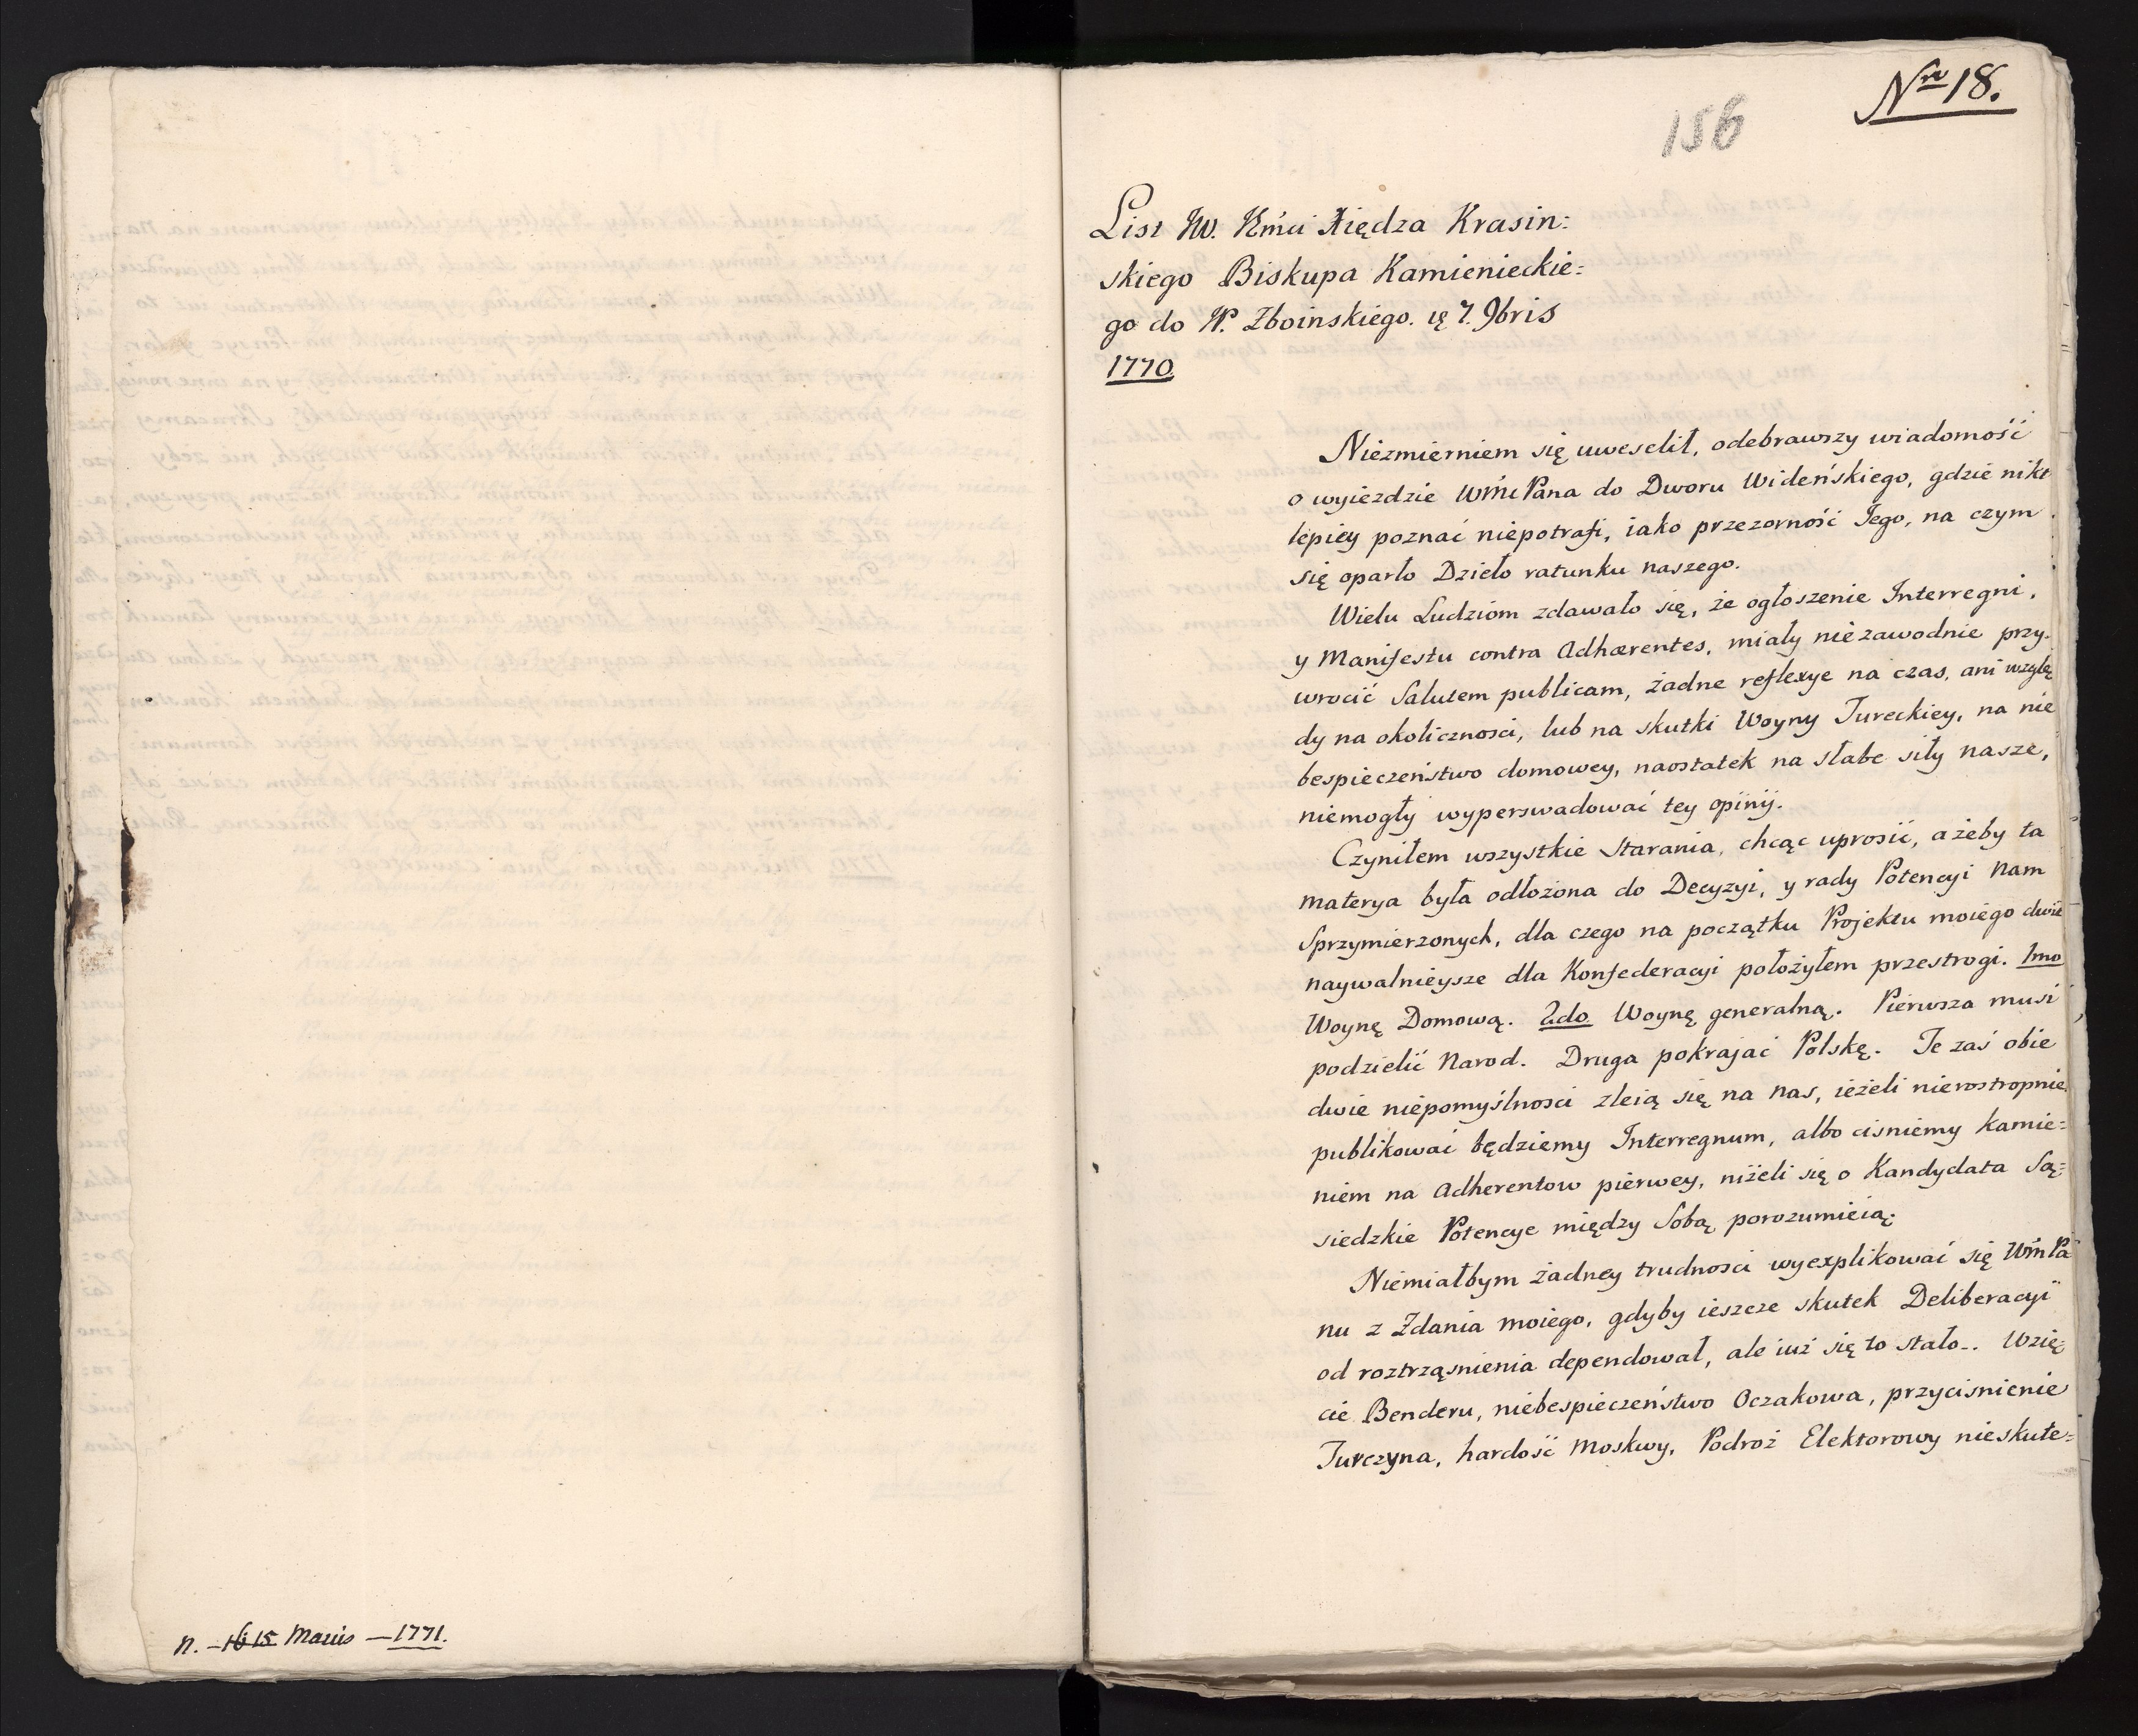 N. – 16 15 Martis – 1771.
Nro 18.
156
List JW. Jmci Xiędza Krasin:
skiego Biskupa Kamienieckie:
go do W. Zboinskiego. 7. 9bris
1770
Niezmierniem się uweselił, odebrawszy wiadomość
o wyiezdzie WMci Pana do Dworu Wideńskiego, gdzie nikt
lepiey poznać niepotrafi, iako przezorność Jego, na czym
się oparło Dzieło ratunku naszego.
Wielu Ludziom zdawało się, że ogłoszenie Interregni,
y Manifestu contra Adhærentes, miały niezawodnie przy-
wrocić Salutem publicam, żadne reflexye na czas, ani wzglę
dy na okoliczności, lub na skutki Woyny Tureckiey, na nie
bespieczeństwo domowey, naostatek na słabe siły nasze,
niemogły wyperswadować tey opinij.
Czyniłem wszystkie starania, chcąc uprosić, ażeby ta
materya była odłożona do Decyzyi, y rady Potencyi Nam
Sprzymierzonych, dla czego na początku Projektu moiego dwie
naywalnieysze dla Konfederacyi położyłem przestrogi. 1mo
Woynę Domową. 2do Woynę generalną. Pierwsza musi
podzielić Narod. Druga pokrajać Polskę. Te zaś obie
dwie niepomyślności zleią się na nas, ieżeli nierostropnie
publikować będziemy Interregnum, albo ciśniemy kamie:
niem na Adherentow pierwey, niżeli się o Kandydata Są:
siedzkie Potencye między Sobą porozumieią.
Niemiałbym żadney trudności wyexplikować się WMPa
nu z Zdania moiego, gdyby ieszcze skutek Deliberacyi
od roztrząśnienia dependował, ale iuż się to stało.. Wzię:
cie Benderu, niebespieczeństwo Oczakowa, przyciśnienie
Turczyna, hardość Moskwy, Podroż Elektorowy nieskute: